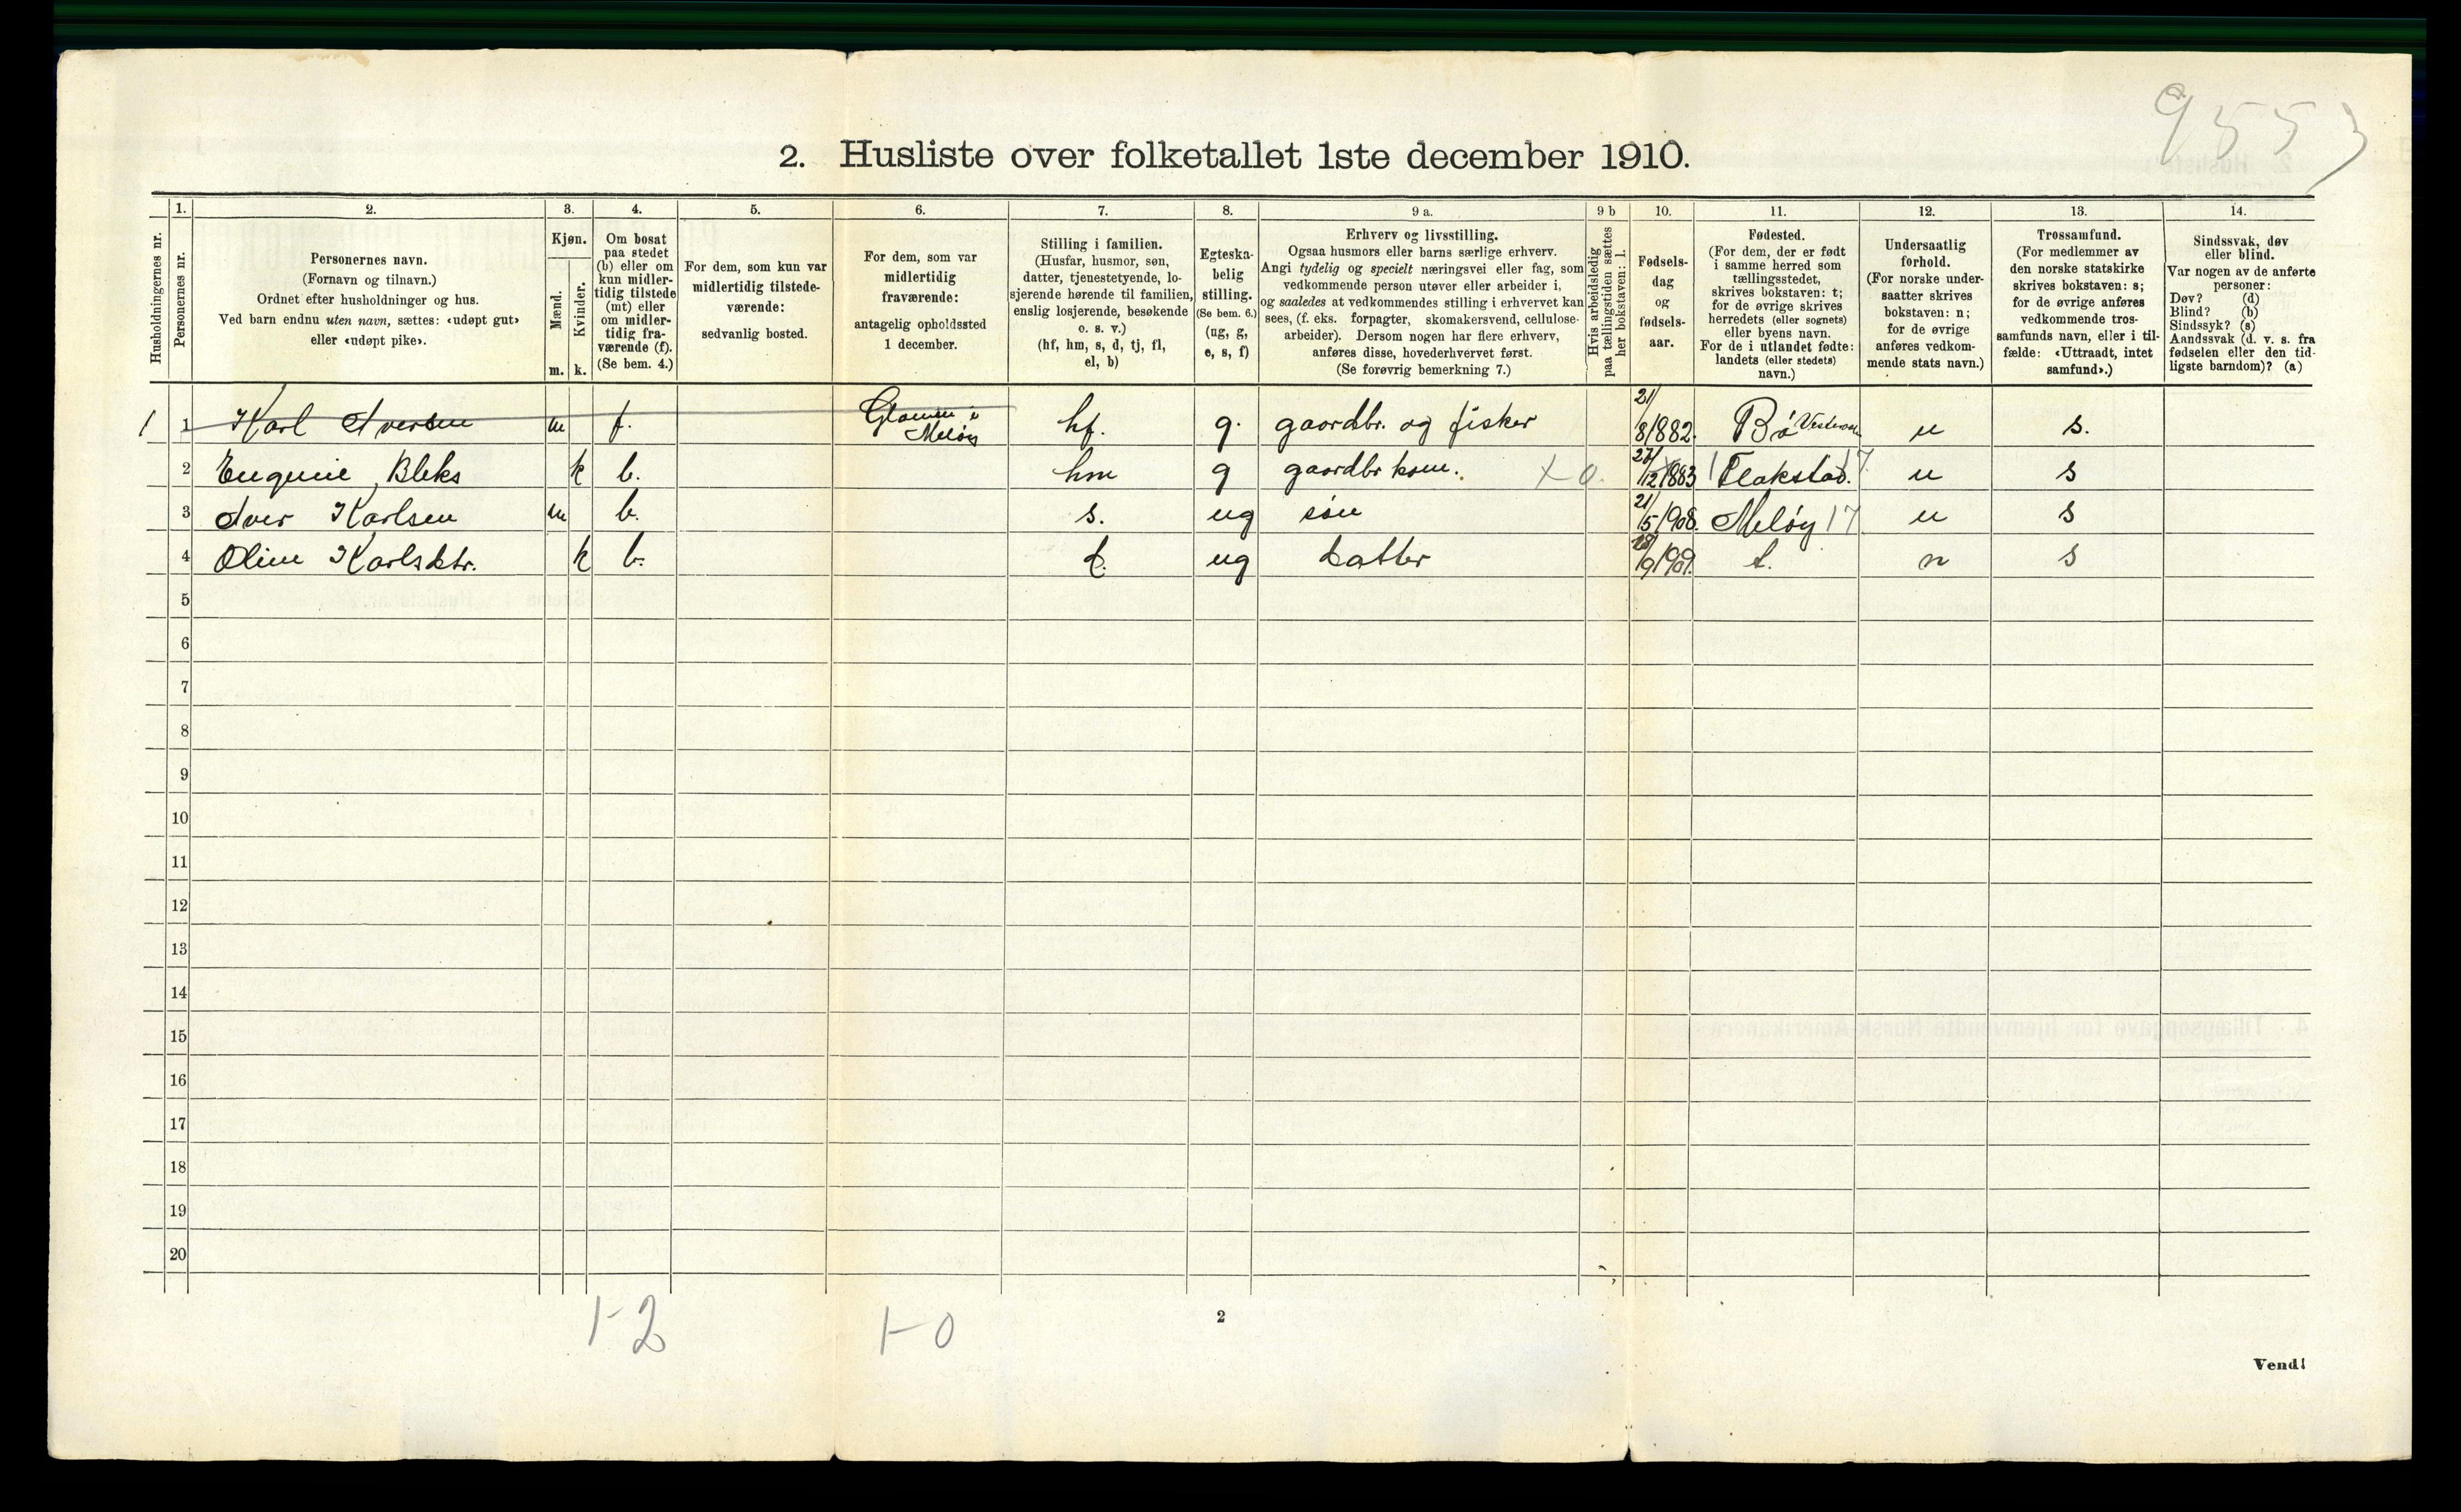 9553
2. Husliste over folketallet 1ste december 1910.
Husholdningernes nr.
1.
Personernes nr.
2.
Personernes navn.
(Fornavn og tilnavn.)
Ordnet efter husholdninger og hus.
Ved barn endnu uten navn, sættes: «udøpt gut»
eller «udøpt pike».
3.
Kjøn.
Mænd.
Kvinder.
m. k.
4.
Om bosat
paa stedet
(b) eller om
kun midler-
tidig tilstede
(mt) eller
om midler-
tidig fra-
værende (f).
(Se bem. 4.)
5.
For dem, som kun var
midlertidig tilstede-
værende:
sedvanlig bosted.
6.
For dem, som var
midlertidig
fraværende:
antagelig opholdssted
1 december.
7.
Stilling i familien.
(Husfar, husmor, søn,
datter, tjenestetyende, lo-
sjerende hørende til familien,
enslig losjerende, besøkende
o. s. v.)
(hf, hm, s, d, tj, fl,
el, b)
8.
Egteska-
belig
stilling.
(Se bem. 6.)
(ug, g,
e, s, f)
9 a.
Erhverv og livsstilling.
Ogsaa husmors eller barns særlige erhverv.
Angi tydelig og specielt næringsvei eller fag, som
vedkommende person utøver eller arbeider i,
og saaledes at vedkommendes stilling i erhvervet kan
sees, (f. eks. forpagter, skomakersvend, cellulose-
arbeider). Dersom nogen har flere erhverv,
anføres disse, hovederhvervet først.
(Se forøvrig bemerkning 7.)
9 b
Hvis arbeidsledig
paa tællingstiden sættes
her bokstaven: l.
10.
Fødsels-
dag
og
fødsels-
aar.
11.
Fødested.
(For dem, der er født
i samme herred som
tællingsstedet,
skrives bokstaven: t;
for de øvrige skrives
herredets (eller sognets)
eller byens navn.
For de i utlandet fødte:
landets (eller stedets)
navn.)
12.
Undersaatlig
forhold.
(For norske under-
saatter skrives
bokstaven: n;
for de øvrige
anføres vedkom-
mende stats navn.)
13.
Trossamfund.
(For medlemmer av
den norske statskirke
skrives bokstaven: s;
for de øvrige anføres
vedkommende tros-
samfunds navn, eller i til-
fælde: «Uttraadt, intet
samfund».)
14.
Sindssvak, døv
eller blind.
Var nogen av de anførte
personer:
Døv? (d)
Blind? (b)
Sindssyk? (s)
Aandssvak (d. v. s. fra
fødselen eller den tid-
ligste barndom)? (a)
1 1 Karl Iversen m f. Glomen i Meløy hf. g. gaardbr. og fisker 21/8/882. Bø n s.
2 Eugenie Bleks k b. hm g gaardbr kone. x 0. 27/12/883 Flakstad. 17 n s
3 Iver Karlsen m b. s. ug søn 21/5/908. Meløy 17 n s
4 Oline Karlsdtr. k b. d. ug datter t. n s
5
6
7
8
9
10
11
12
13
14
15
16
17
18
19
20
1-2 1-0
2
Vend!